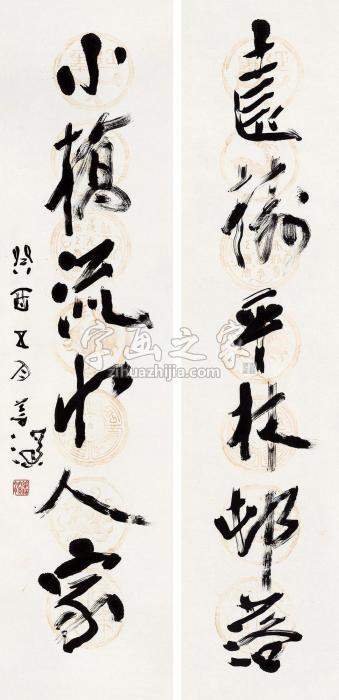 遠平林邨落
小橋流水人家
癸酉五月
字画之家
zihuazhijia.com